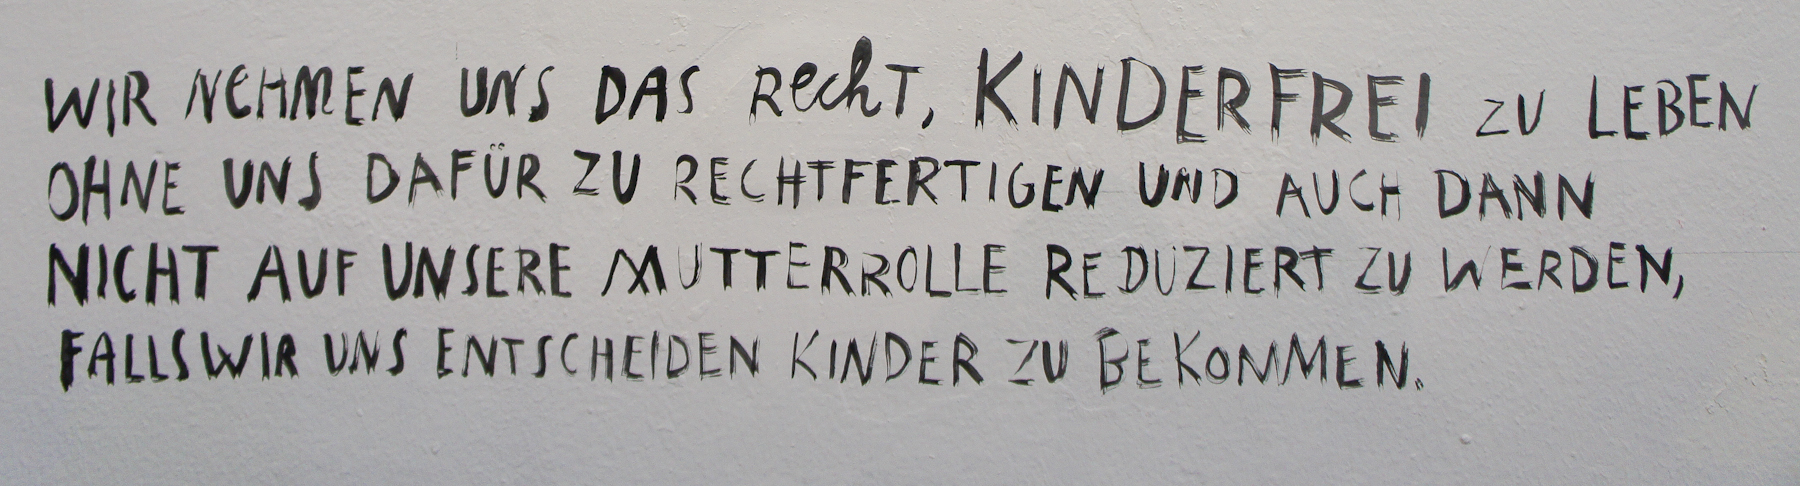 WIR NEHMEN UNS DAS RechT, KINDERFREI ZU LEBEN
OHNE UNS DAFÜR ZU RECHTFERTIGEN UND AUCH DANN
NICHT AUF UNSERE MUTTERROLLE REDUZIERT ZU WERDEN,
FALLS WIR UNS ENTSCHEIDEN KINDER ZU BEKOMMEN.